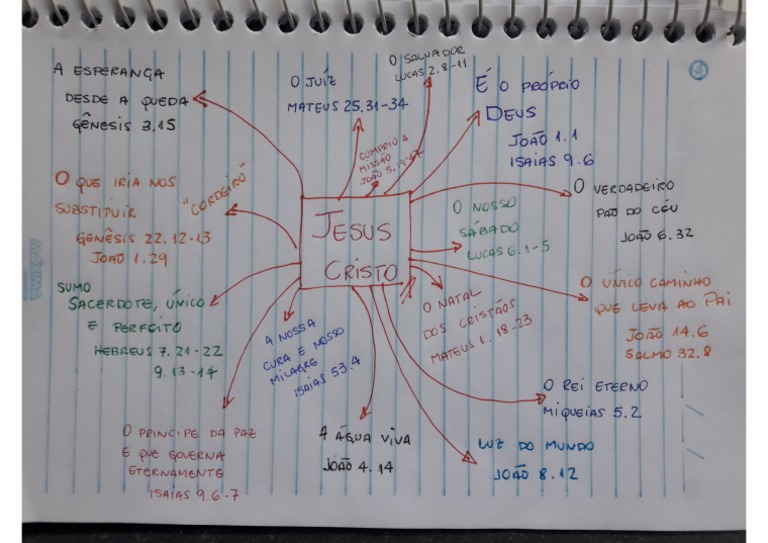 A ESPERANÇA
DESDE A QUEDA
GÊNESIS 3.15
O JUÍZ
MATEUS 25.31-34
O SALVADOR
LUCAS 2.8-11
É O PRÓPRIO
DEUS
JOÃO 1.1
ISAIAS 9.6
CUMPRIU A
MISSÃO
O QUE IRIA NOS
SUBSTITUIR "CORDEIRO"
GENÊSIS 22.12-13
JOÃO 1.29
JESUS
CRISTO
O NOSSO
SÁBADO
LUCAS 6.1-5
O VERDADEIRO
PÃO DO CÉU
JOÃO 6.32
SUMO
SACERDOTE, ÚNICO
E PERFEITO
HEBREUS 7.21-22
9.13-14
A NOSSA
CURA E NOSSO
MILAGRE
ISAIAS 53.4
O NATAL
DOS CRISTÃOS
MATEUS 1.18-23
O ÚNICO CAMINHO
QUE LEVA AO PAI
JOÃO 14.6
SALMO 32.8
O REI ETERNO
MIQUEIAS 5.2
O PRINCIPE DA PAZ
E QUE GOVERNA
ETERNAMENTE
ISAIAS 9.6-7
A ÁGUA VIVA
JOÃO 4.14
LUZ DO MUNDO
JOÃO 8.12